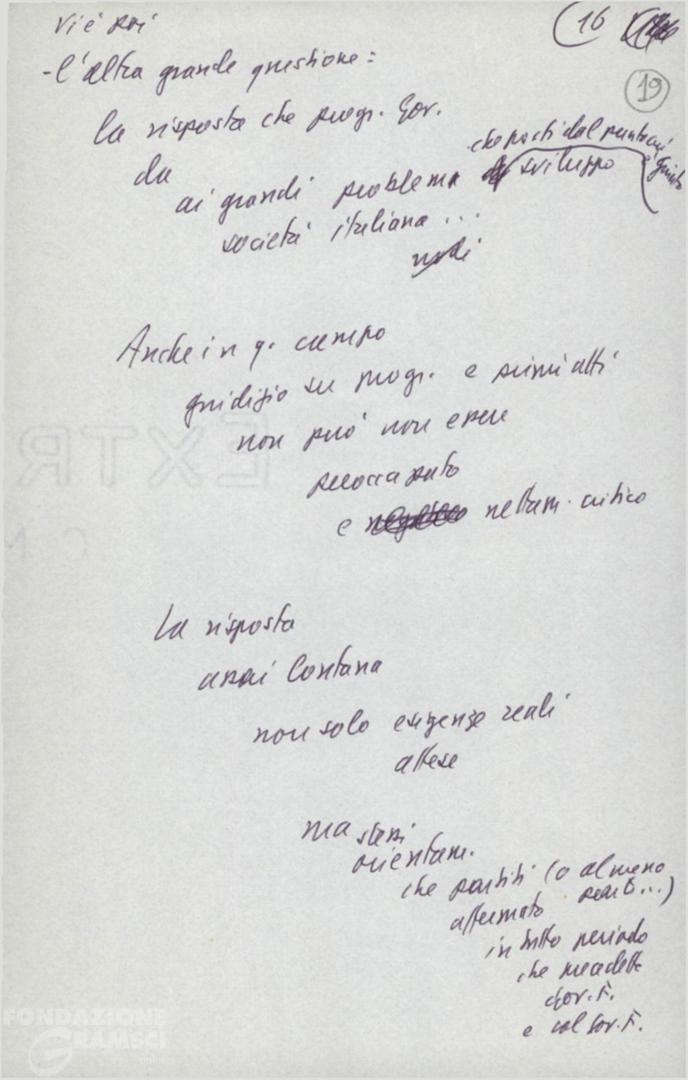 vi è poi
16
19
- l'altra grande questione:
la risposta che progr. Gov.
da
ai grandi problemi sviluppo
che parti dal
società italiana...
nodi
Anche in q. campo
giudizio su progr. e primi atti
non può non essere
preoccupato
e nettam. critico
La risposta
assai lontana
non solo esigenze reali
attese
ma stessi
orientam.
che partiti (o almeno
affermato parte...)
in tutto periodo
che precedette
Gov. F.
e col Gov. F.
EXTR
FONDAZIONE
GRAMSCI